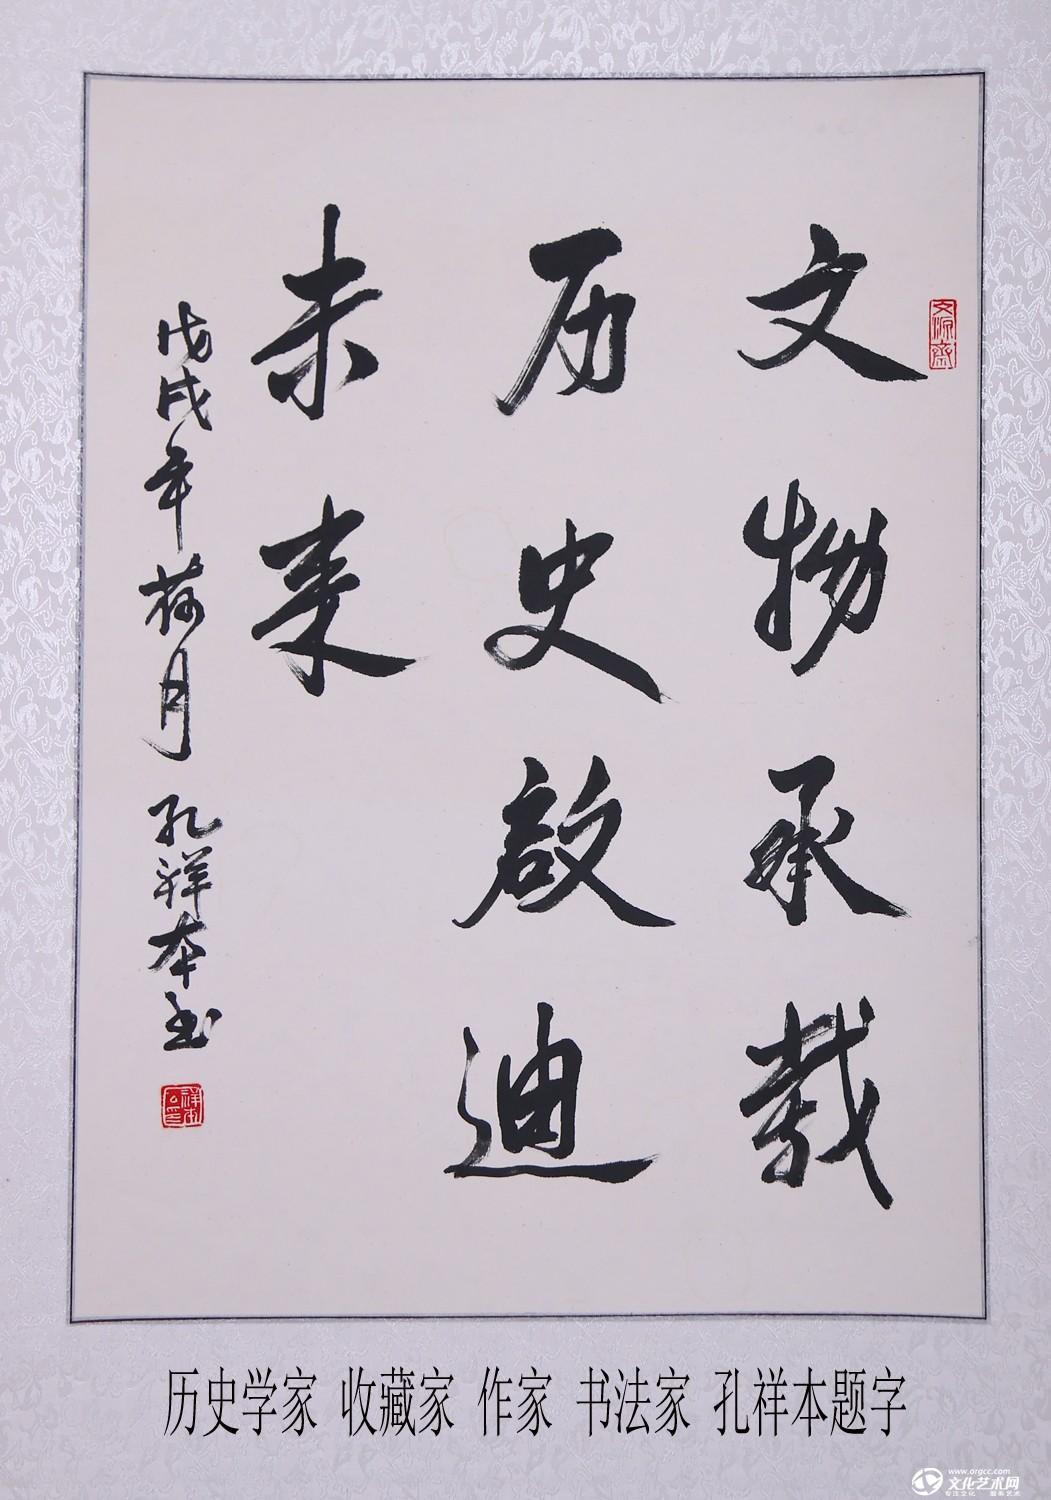 文物承载
历史啟迪
未来
戊戌年荷月 孔祥本书
文源斋
历史学家 收藏家 作家 书法家 孔祥本题字
www.orgcc.com
文化艺术网
专注文化 服务艺术